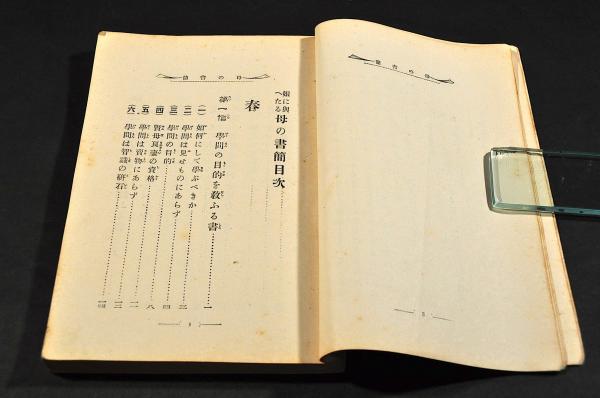 母の書簡
娘に與へたる 母の書簡目次
春
第一信 學問の目的を敎ふる書 一
(一) 如何にして學ぶべきか 一
(二) 學問は見せものにあらず 三
(三) 學問の目的 四
(四) 賢母良妻の資格 八
(五) 學問は賣物にあらず 一一
(六) 學問は智識の砥石 一四